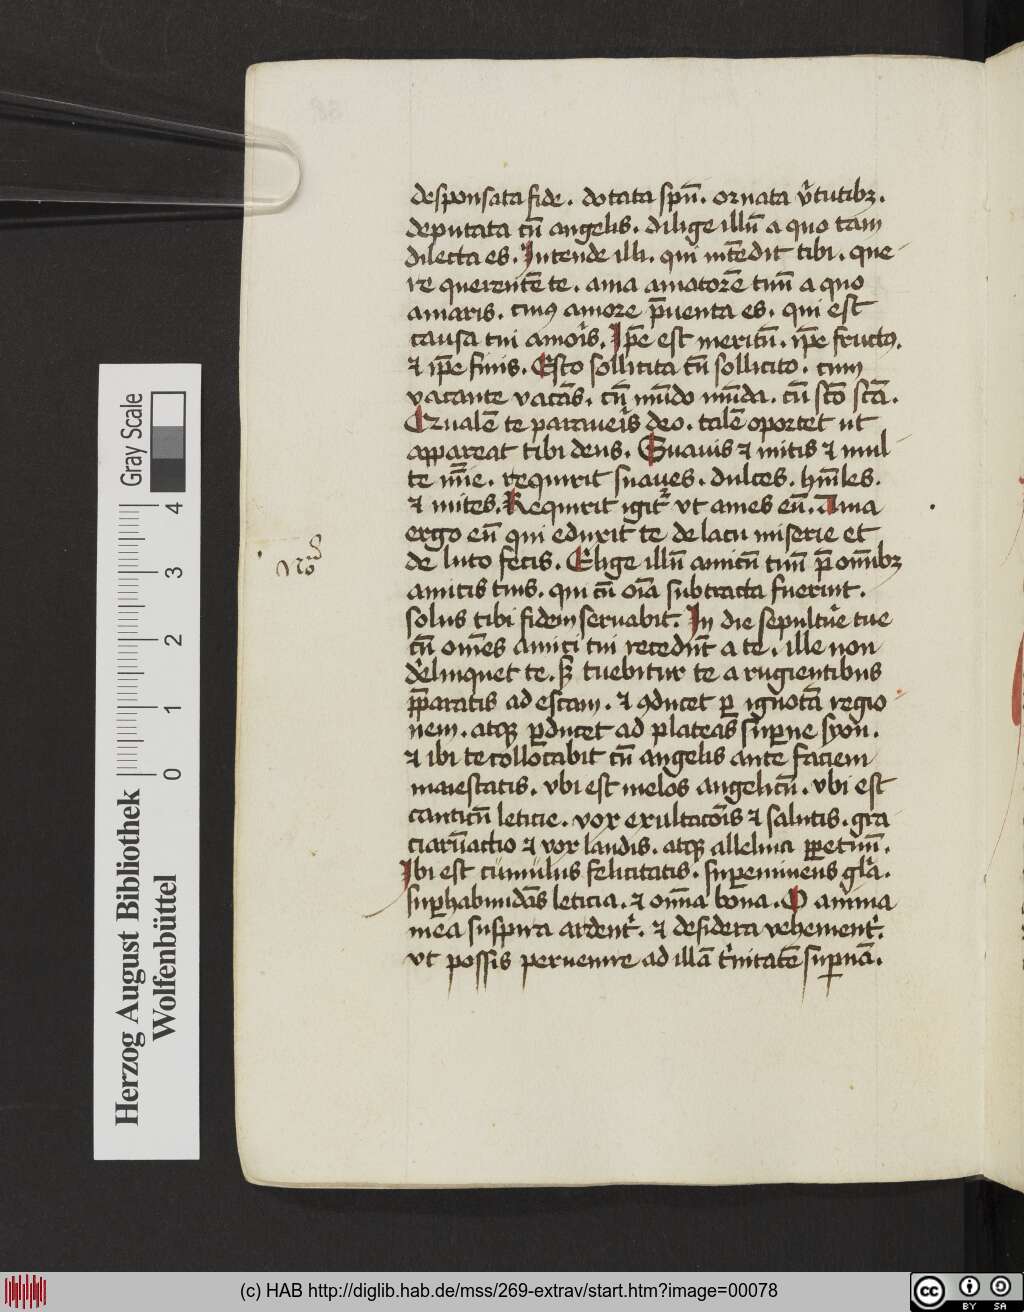 desponsata fide. dotata spū. ornata v̓tutibꝫ.
deputata cū angelis. dilige illū a quo tam
dilecta es. Intende illi. qui intēdit tibi. que
re querentē te. ama amatorē tuū a quo
amaris. cuiꝰ amore p̄uenta es. qui est
causa tui amor̓is. Ip̄e est meritū. ip̄e fructꝰ.
⁊ ip̄e finis. Esto sollicita cū sollicito. cum
vacante vacās. cū mūdo mūda. cū sc̄o sc̄a.
Qualē te paraueris deo. talē oportet ut
appareat tibi deus. Suauis ⁊ mitis ⁊ mul
te mīe. requirit suaues. dulces. hūiles.
⁊ mites. Requirit igitr̄ vt ames eū. Ama
ergo eū qui eduxit te de lacu miserie et
de luto fecis. Elige illū amicū tuū p̄ omībꝫ
amicis tuis. qui cū oīa subtracta fuerint.
solus tibi fidem seruabit. In die sepultur̄e tue
cū om̄es amici tui recedūt a te. ille non
der̓linquet te. sꝫ tuebitur te a rugientibus
p̄paratis ad escam. ⁊ ꝯducet ꝑ ignotā regio
nem. atqꝫ ꝑducet ad plateas suꝑne syon.
⁊ ibi te collocabit cū angelis ante faciem
maiestatis. vbi est melos angelicū. vbi est
canticū leticie. vox exultacōis ⁊ salutis. gra
ciarūactio ⁊ vox laudis. atqꝫ alleluia ꝑpetuū.
Ibi est cumulus felicitatis. suꝑeminens gl̓a.
suꝑhabūdās leticia. ⁊ om̄ia bona. O anima
mea suspira ardent̓. ⁊ desidera vehement̓.
vt possis peruenire ad illā ciuitatē suꝑnā.
Herzog August Bibliothek
Wolfenbüttel
Gray Scale
0 1 2 3 4
(c) HAB http://diglib.hab.de/mss/269-extrav/start.htm?image=00078
cc BY SA